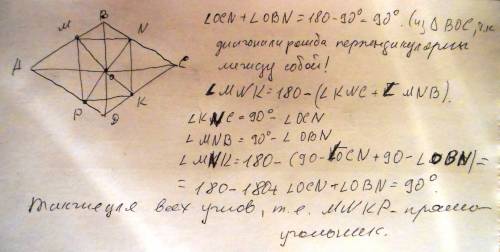 B
M
N
A
C
O
P
K
D
∠OCN + ∠OBN = 180 - 90° - 90°. (из △BOC, т.к.
диагонали ромба перпендикулярны
между собой!
∠MNK = 180 - (∠KNC + ∠MNB).
∠KNC = 90° - ∠OCN
∠MNB = 90° - ∠OBN
∠MNK = 180 - (90 - ∠OCN + 90 - ∠OBN) =
= 180 - 180 + ∠OCN + ∠OBN = 90°.
Также для всех углов, т.е. MNKP - прямо
угольник.